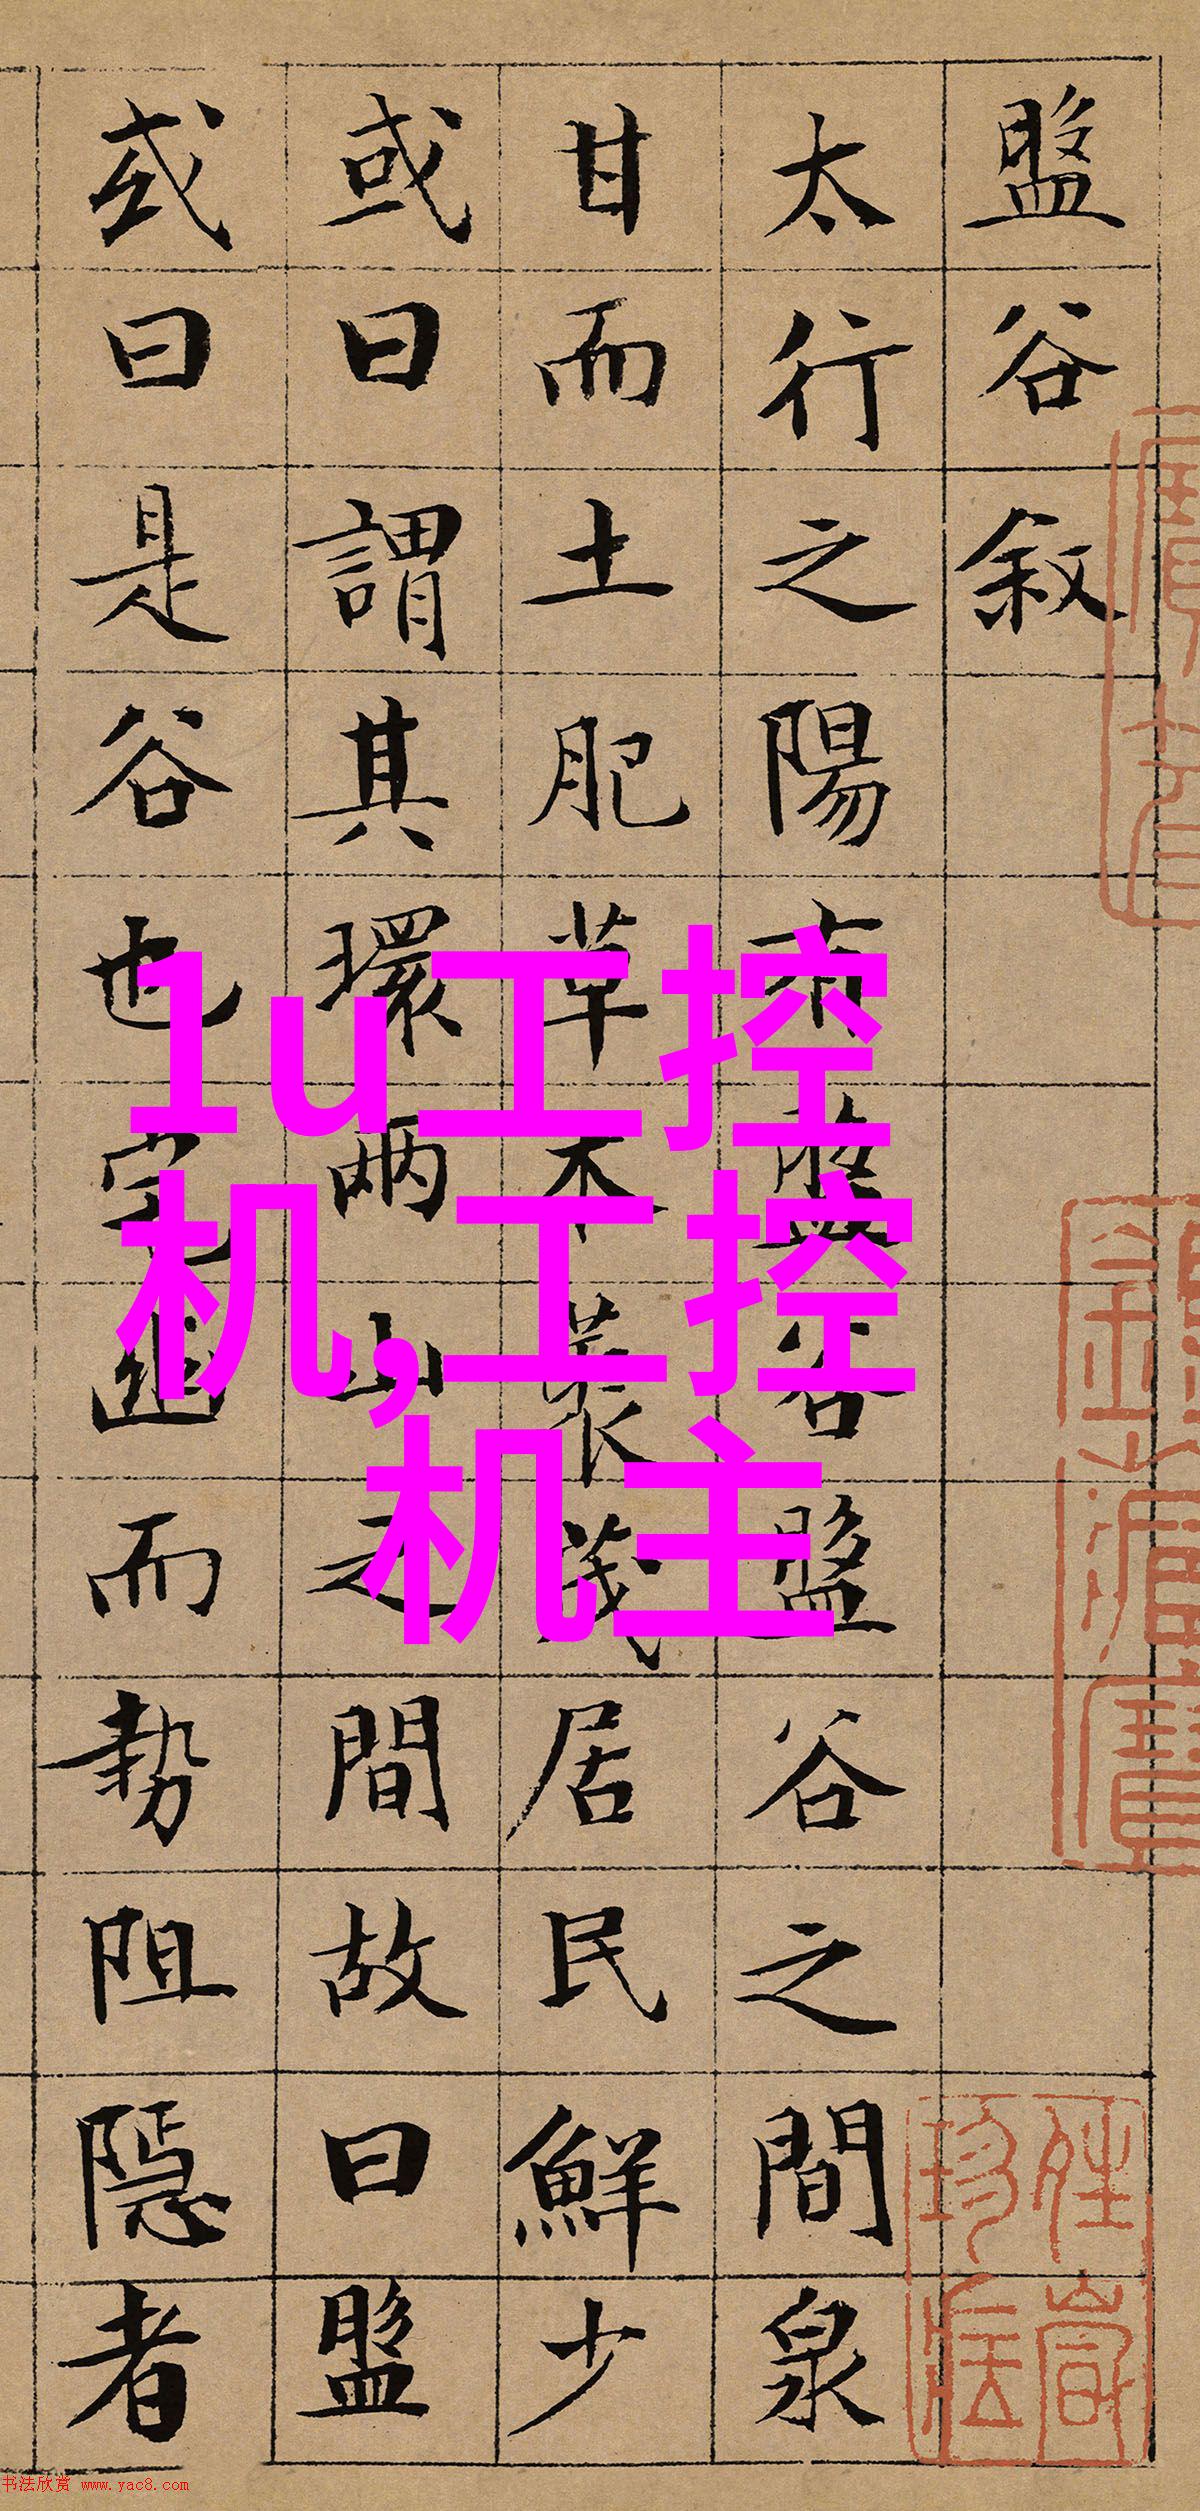 盤谷叙
太行之陽有盤谷盤谷之間泉
甘而土肥草木藂茂居民鮮少
或曰謂其環兩山之間故曰盤
或曰是谷也宅幽而勢阻隱者
1u工控
机,工控
机主
书法欣赏 www.yac8.com